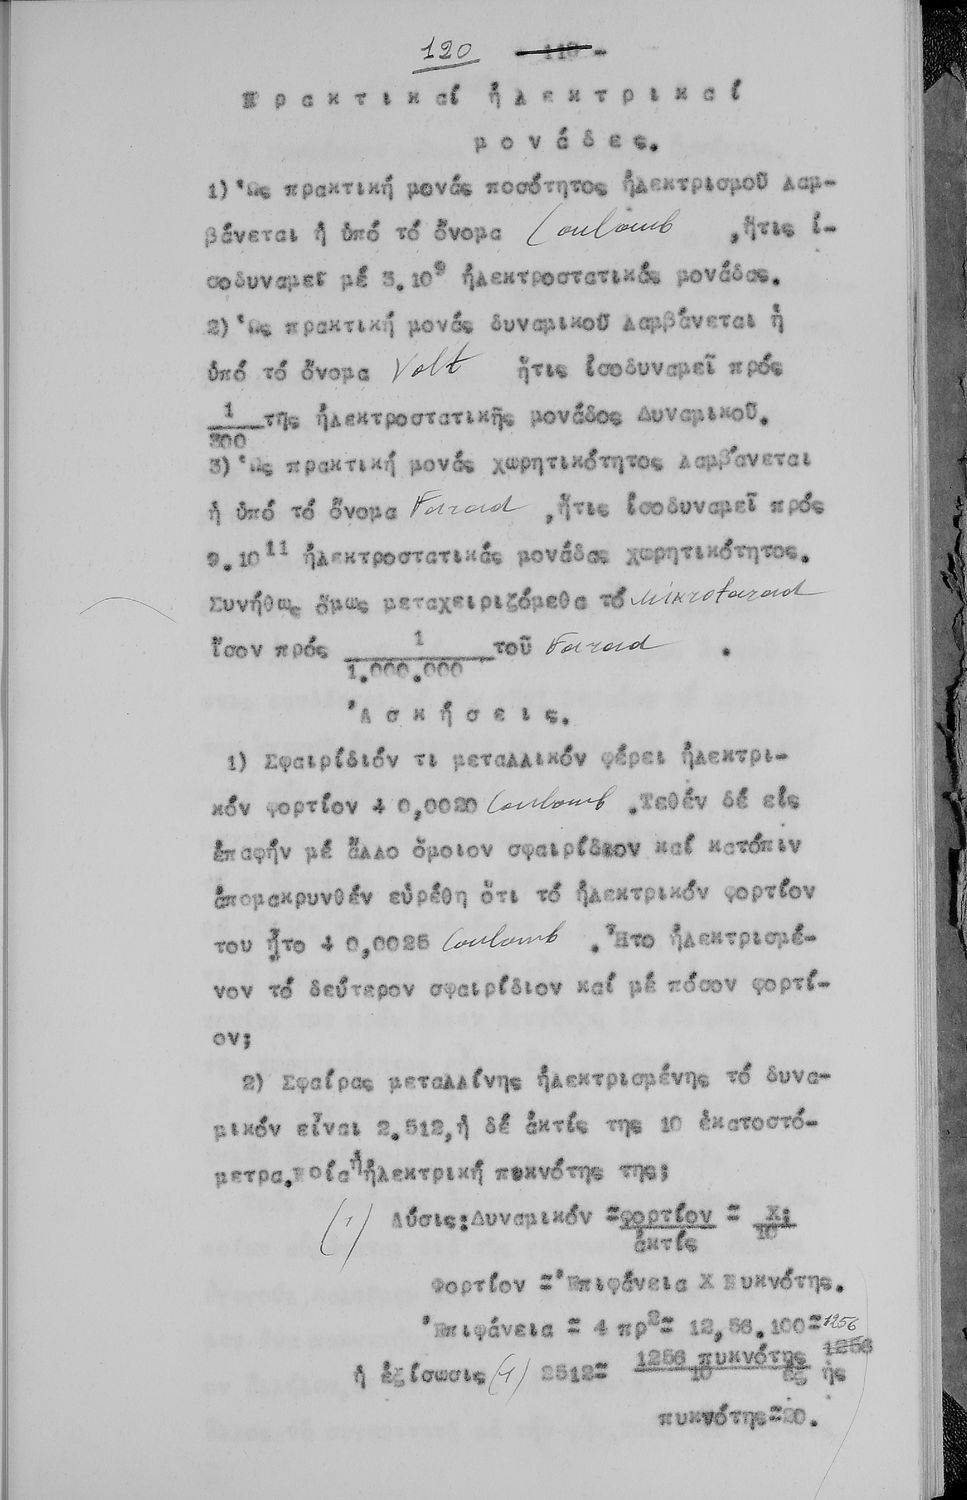 120 - 119 -
Πρακτικαί ἠλεκτρικαί
μονάδες.
1) Ὡς πρακτική μονάς ποσότητος ἠλεκτρισμοῦ λαμ-
βάνεται ἡ ὑπό τό ὄνομα Coulomb ,ἥτις ἰ-
σοδυναμεῖ μέ 3.10⁹ ἠλεκτροστατικάς μονάδας.
2) Ὡς πρακτική μονάς δυναμικοῦ λαμβάνεται ἡ
ὑπό τό ὄνομα Volt ἥτις ἰσοδυναμεῖ πρός
1/300 τῆς ἠλεκτροστατικῆς μονάδος Δυναμικοῦ.
3) Ὡς πρακτική μονάς χωρητικότητος λαμβάνεται
ἡ ὑπό τό ὄνομα Farad ,ἥτις ἰσοδυναμεῖ πρός
9.10¹¹ ἠλεκτροστατικάς μονάδας χωρητικότητος.
Συνήθως ὅμως μεταχειριζόμεθα τό Mikrofarad
ἴσον πρός 1/1.000.000 τοῦ Farad .
Ἀσκήσεις.
1) Σφαιρίδιόν τι μεταλλικόν φέρει ἠλεκτρι-
κόν φορτίον + 0,0020 Coulomb .Τεθέν δέ εἰς
ἐπαφήν μέ ἄλλο ὅμοιον σφαιρίδιον καί κατόπιν
ἀπομακρυνθέν εὑρέθη ὅτι τό ἠλεκτρικόν φορτίον
του ἦτο + 0,0025 Coulomb .Ἦτο ἠλεκτρισμέ-
νον τό δεύτερον σφαιρίδιον καί μέ πόσον φορτί-
ον;
2) Σφαίρας μεταλλίνης ἠλεκτρισμένης τό δυνα-
μικόν εἶναι 2.512,ἡ δέ ἀκτίς της 10 ἑκατοστό-
μετρα.Ποία ἡ ἠλεκτρική πυκνότης της;
(1) Λύσις:Δυναμικόν =φορτίον/ἀκτίς = Χ;/10
Φορτίον =Ἐπιφάνεια Χ Πυκνότης.
Ἐπιφάνεια = 4 πρ²= 12,56.100=1256
1256
ἡ ἐξίσωσις (1) 2512= 1256 πυκνότης/10 ἐξ ἧς
πυκνότης=20.